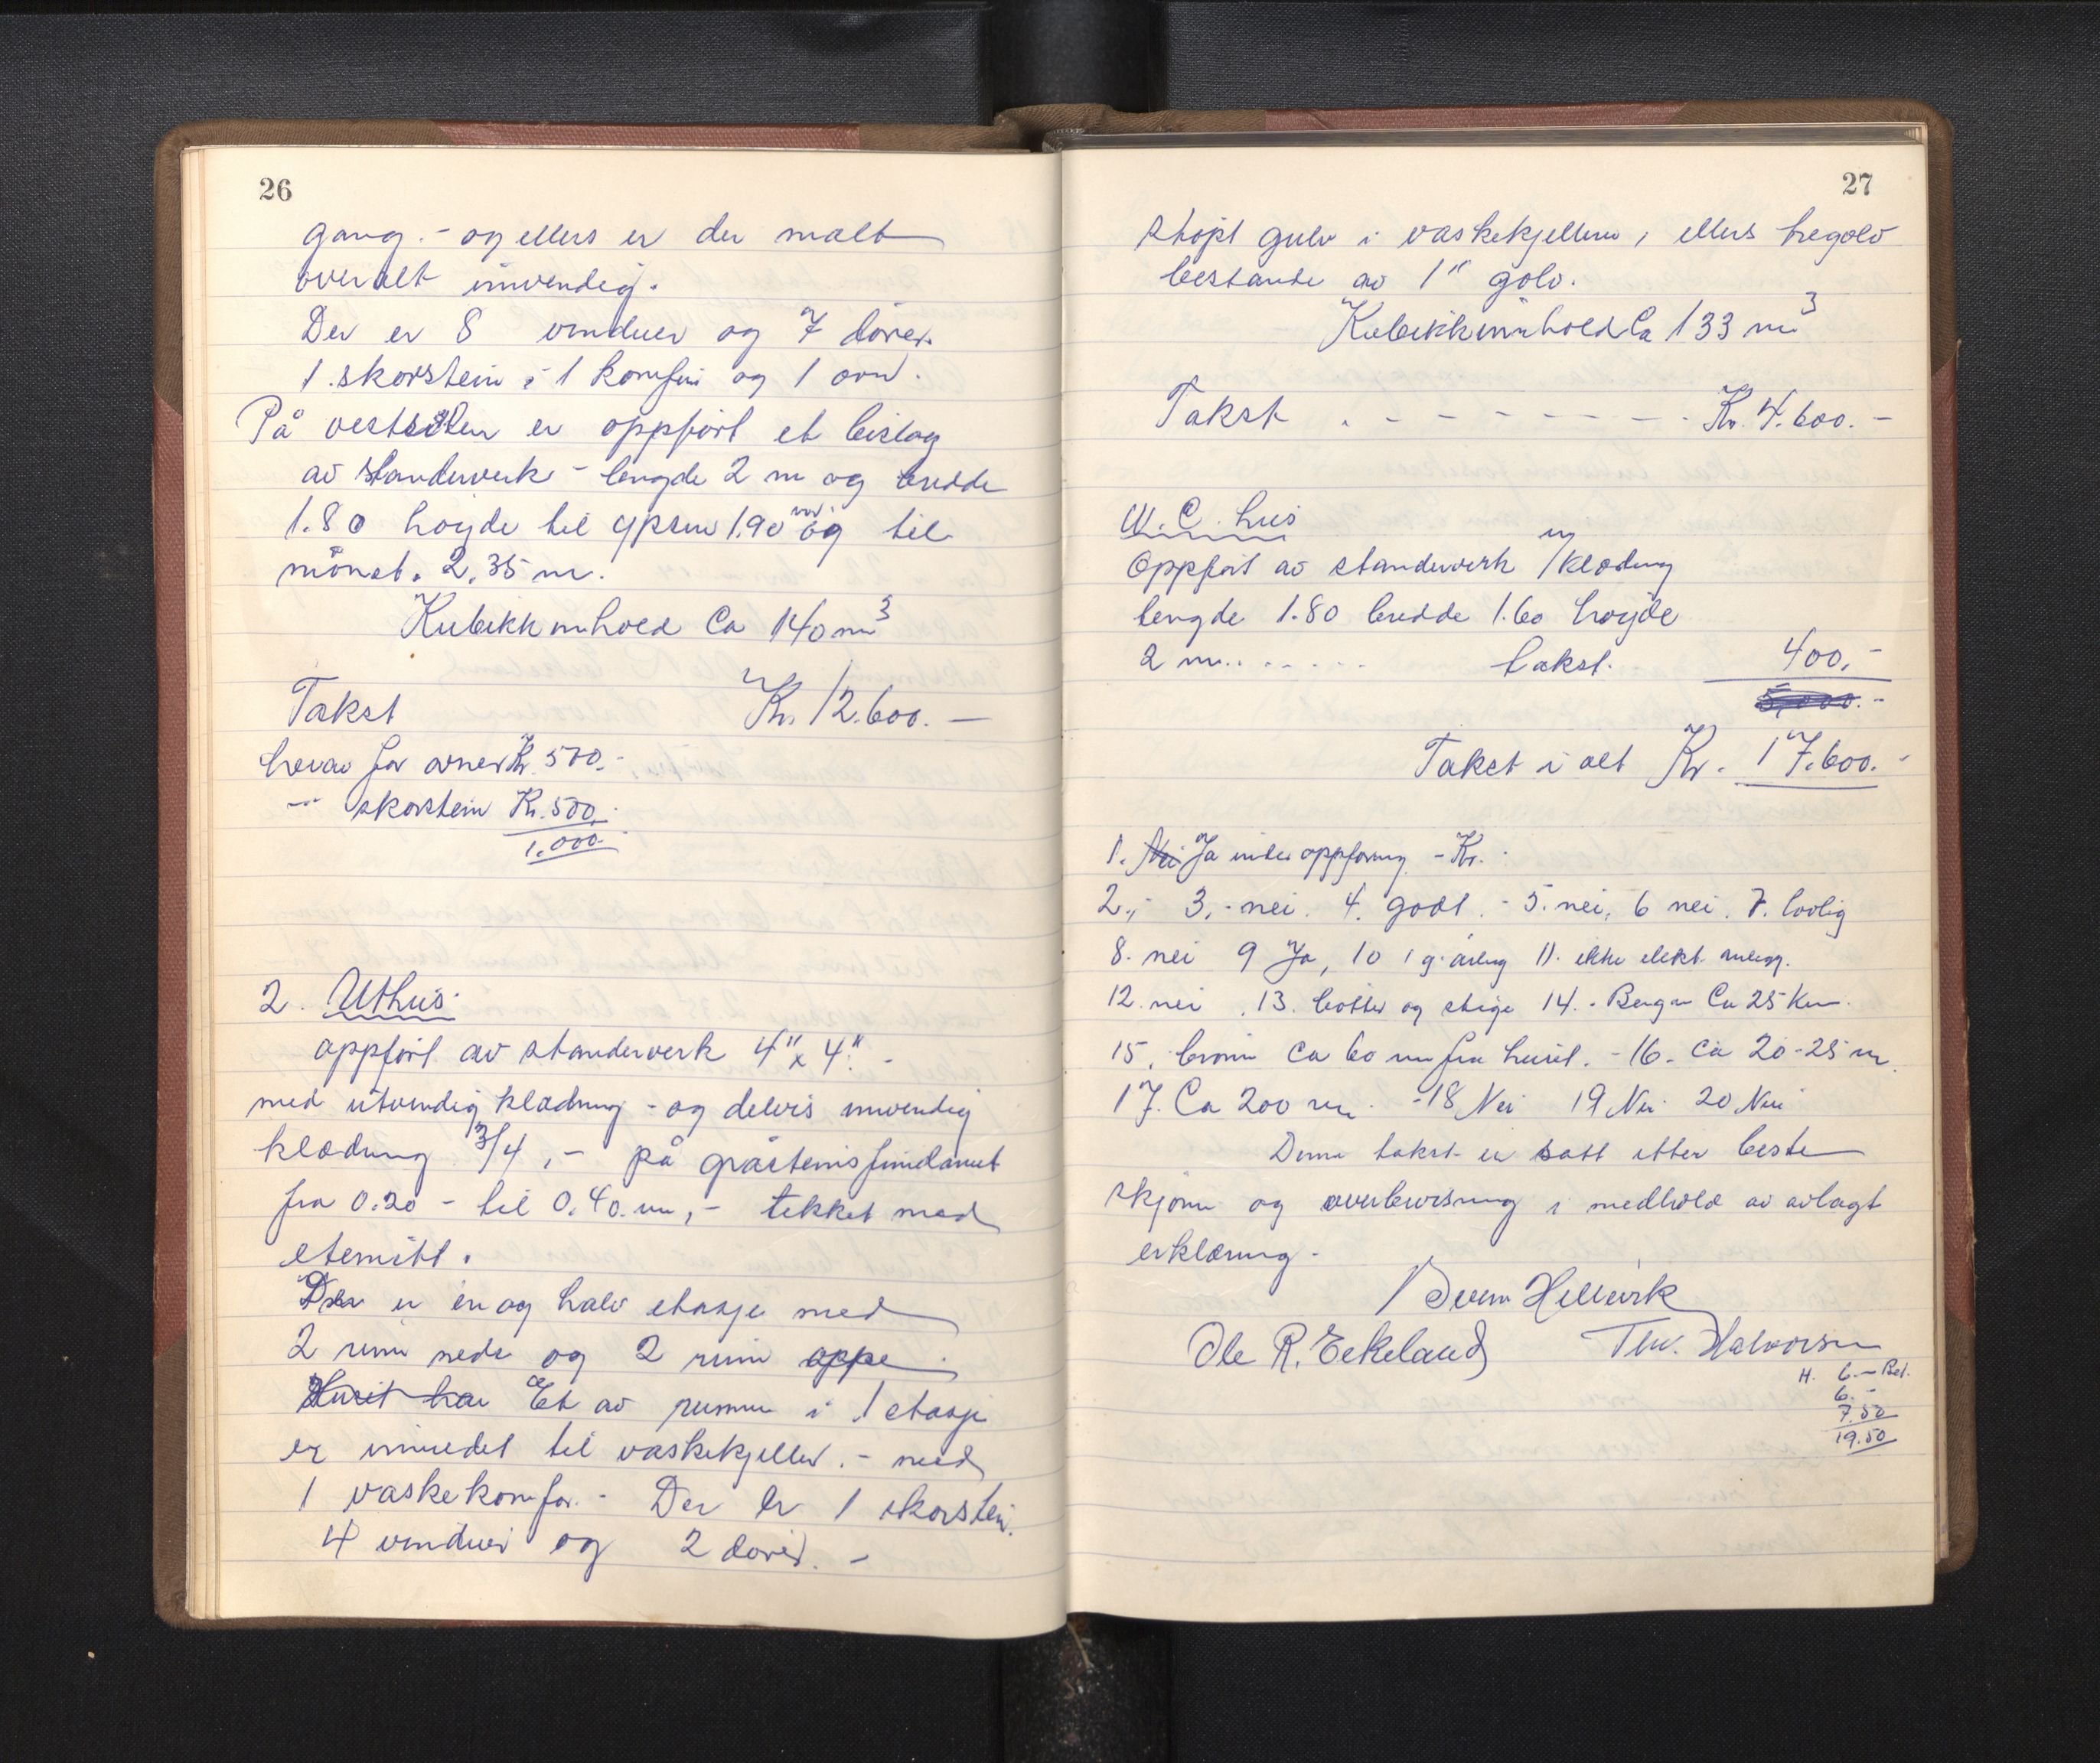 26
gang. - og ellers er der malt
overalt innvendig.
Der er 8 vinduer og 7 dører.
1 skorstein i 1 komfur og 1 ovn.
På vestsiden er oppført et bislag
av standerverk - lengde 2 m og bredde
1.80 høyde til gpsen 1.90 m og til
mønet. 2,35 m.
Kubikkinnhold Ca 140 m³
Takst Kr. 12.600. —
herav for ovner Kr. 500.-
-"- skorstein Kr. 500.
1.000.-
2. Uthus.
oppført av standerverk 4" x 4". -
med utvendig kledning - og delvis innvendig
kledning 3/4, - på gråsteinsfundament
fra 0.20 - til 0.40. m, - tekket med
eternitt.
Der er en og halv etasje med
2 rum nede og 2 rum oppe.
Huset har Et av rummene i 1 etasje
er innredet til vaskekjeller. - med
1 vaskekomfur. - Der er 1 skorstein.
4 vinduer og 2 dører. -
27
støpt gulv i vaskekjelleren, ellers tregolv
bestående av 1" golv.
Kubikkinnhold Ca 133 m³
Takst . - - - - - - - Kr. 4.600. -
W.C. hus
Oppført av standerverk m/kledning
lengde 1.80 bredde 1.60 høyde
2 m. . . . . . takst. 400,-
5,000.-
Takst i alt Kr. 17.600. -
1. Nei Ja under oppføring - Kr. -
2.,- 3,- nei. 4. godt. - 5. nei, 6 nei. 7. lovlig
8. nei 9 Ja, 10 1 g. årlig 11. ikke elekt. anlegg.
12. nei . 13. bøtter og stige 14. - Bergen Ca 25 Km.
15. brønn Ca 60 m fra huset. - 16. Ca 20-25 m.
17. Ca 200 m. - 18 Nei 19 Nei 20 Nei
Denne takst er satt etter beste
skjønn og overbevisning i medhold av avlagt
erklæring -
Ole R. Eikeland Thv. Halvorsen
H. 6.- Bet.
6.-
7.50
19.50